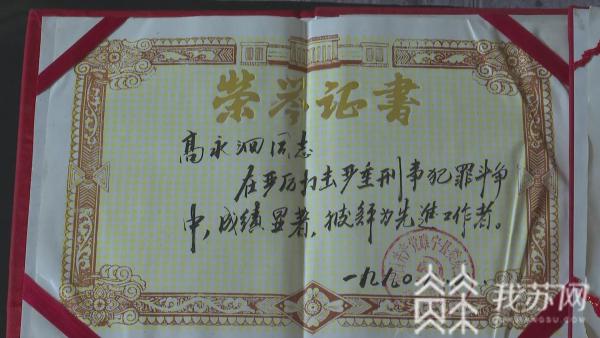 荣誉证书
高永泗同志
在严厉打击严重刑事犯罪斗争
中，成绩显著，被评为先进工作者。
一九九〇
我苏网
OURJIANGSU.COM